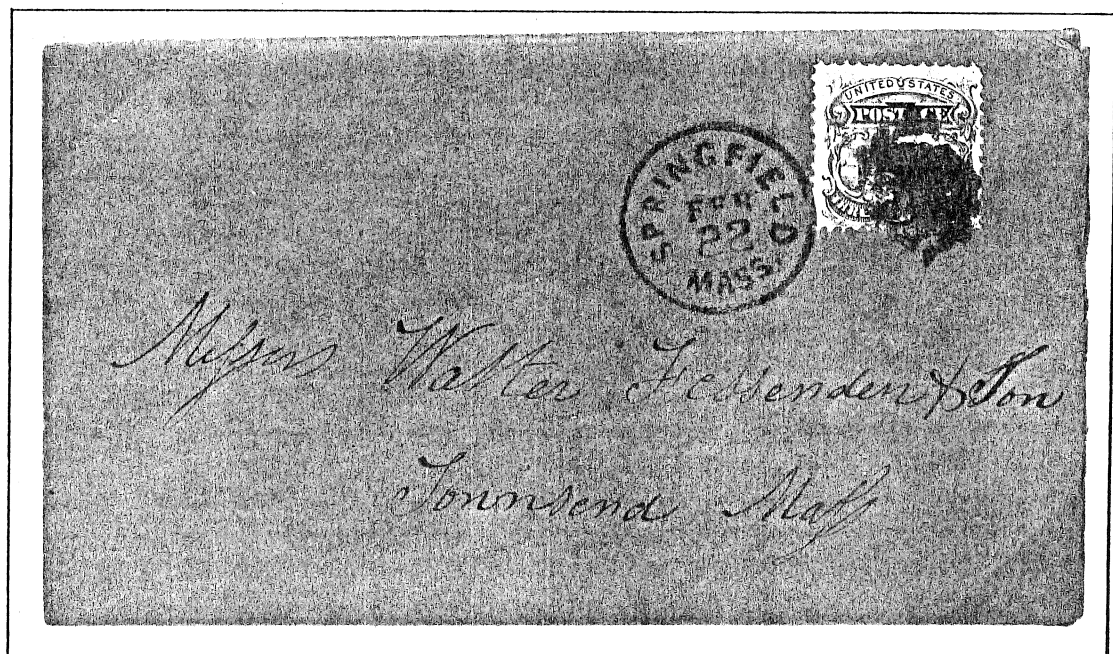 UNITED STATES
POSTAGE
SPRINGFIELD
FEB
22
MASS.
Messrs Walter Fessenden & Son
Townsend Mass